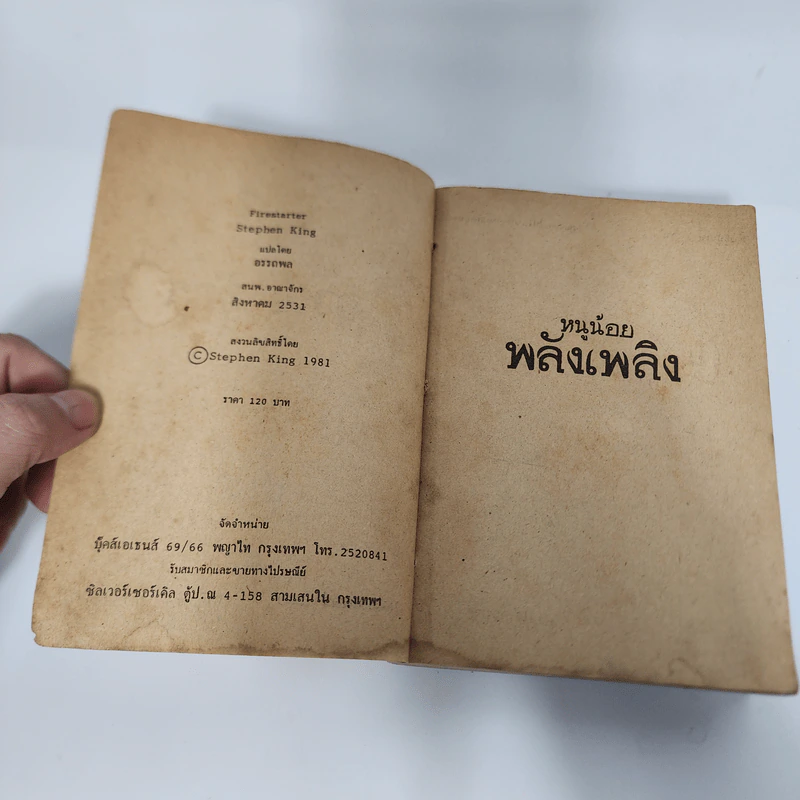 Firestarter
Stephen King
แปลโดย
อรรถพล
สนพ.อาณาจักร
สิงหาคม 2531
สงวนลิขสิทธิ์โดย
©Stephen King 1981
ราคา 120 บาท
จัดจำหน่าย
บุ๊คส์เอเธนส์ 69/66 พญาไท กรุงเทพฯ โทร.2520841
รับสมาชิกและขายทางไปรษณีย์
ซิลเวอร์เชอร์เคิล ตู้ป.ณ 4-158 สามเสนใน กรุงเทพฯ
หนูน้อย
พลังเพลิง